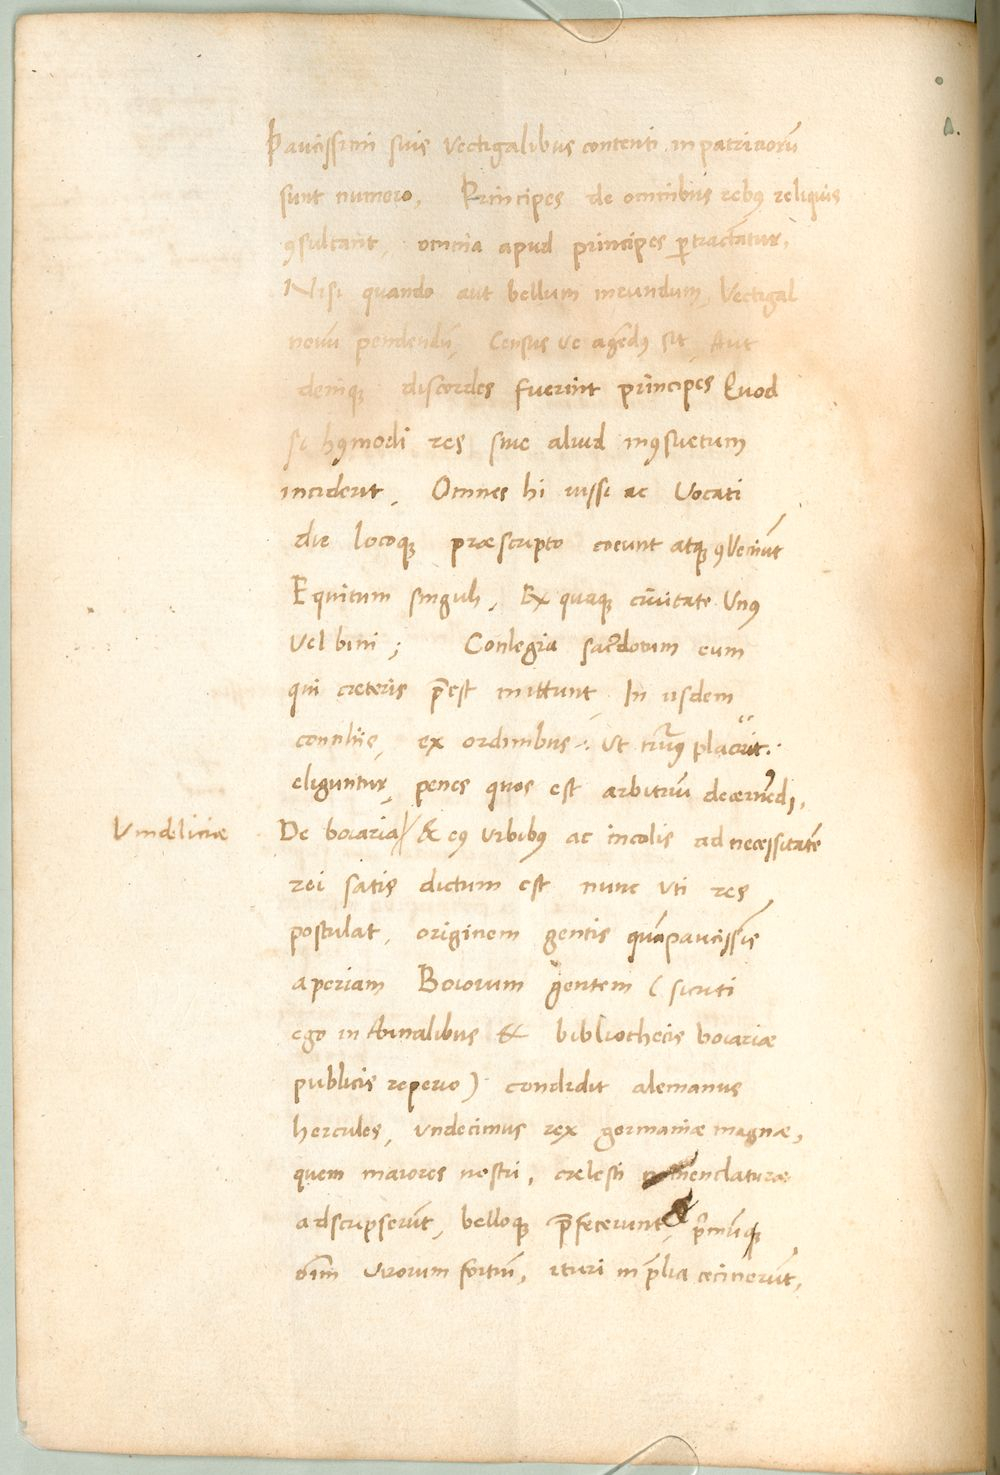 Paucissimi suis vectigalibus contenti in patriciorū
sunt numero, Principes de omnibus rebꝰ reliquis
ꝯsultant, omnia apud principes ꝑtractātur,
Nisi quando aut bellum ineundum, Vectigal
novū pendendū, Census ve agēdꝰ sit, Aut
deniqꝫ discordes fuerint principes Quod
si hꝰmodi res sive aliud inꝯsuetum
inciderit, Omnes hi iussi ac Vocati
die locoqꝫ præscripto coeunt atqꝫ ꝯVeniūt
Equitum singuli, Ex quaqꝫ civitate Unꝰ
Vel bini; Conlegia sac̄dotum eum
qui cæteris p̄est mittunt In iisdem
conciliis, ex ordinibus ut placuerit
eliguntur, penes quos est arbitriū decernēdi,
Vindeliciæ
De boiaria & eꝰ Urbibꝰ ac incolis ad necessitatē
rei satis dictum est nunc uti res
postulat, originem gentis quā paucissīs
aperiam Boiorum gentem (sicuti
ego in Annalibus & bibliothecis boiariæ
publicis reperio) condidit alemanus
hercules, undecimus rex germaniæ magnæ,
quem maiores nostri, cælesti nomenclaturæ
adscripserūt, belloqꝫ p̄fecerunt, & prīmūqꝫ
oīm virorum fortiū, ituri in p̄lia cecinerūt,